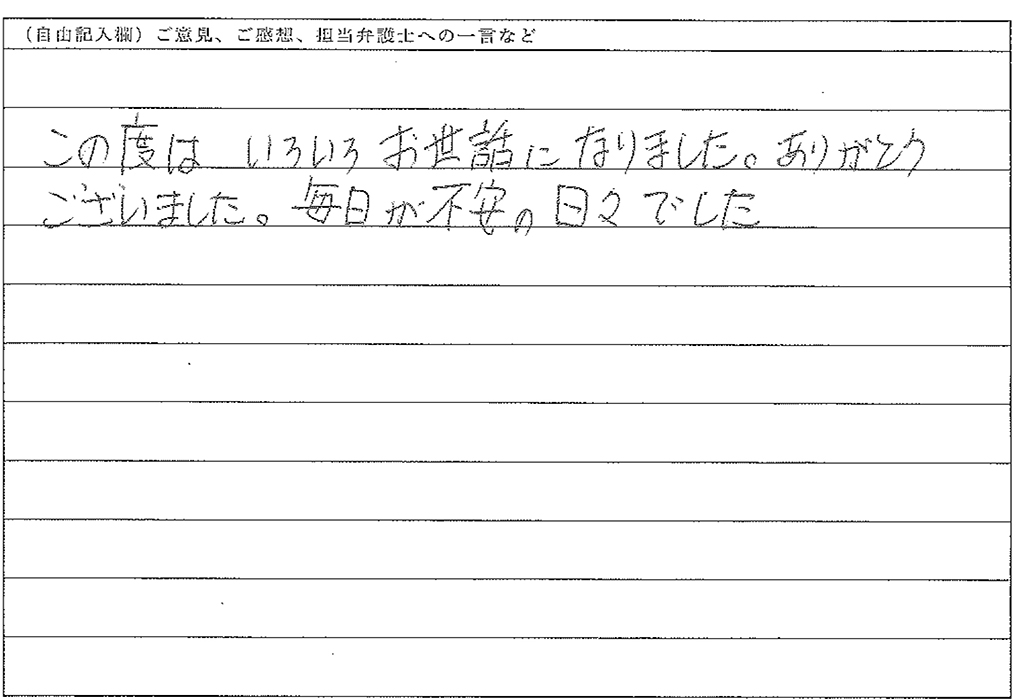 （自由記入欄）ご意見、ご感想、担当弁護士への一言など
この度は いろいろ お世話に なりました。ありがとう
ございました。毎日が不安の日々でした